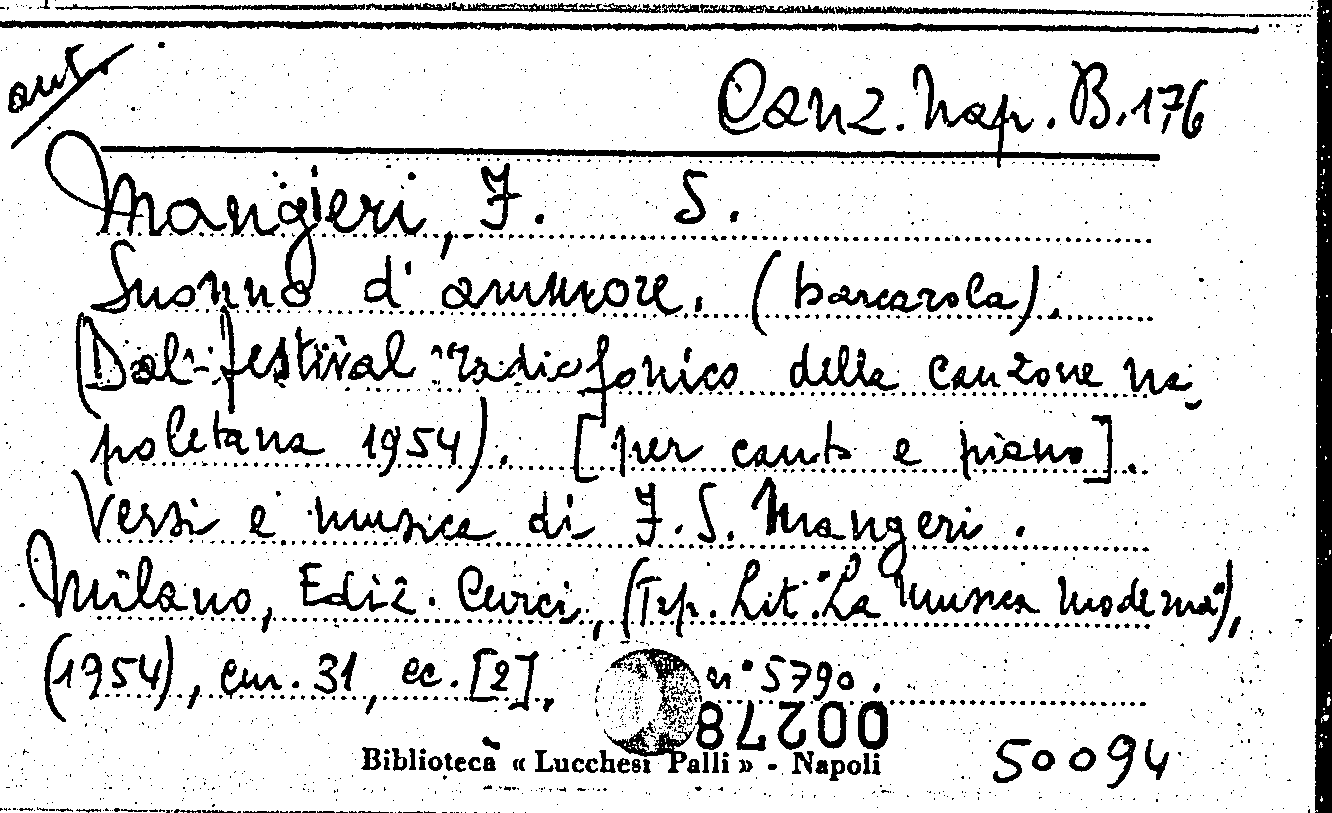 aut.
Canz. Nap. B.176
Mangieri, F. S.
Suonno d'ammore. (barcarola).
(Dal festival radiofonico della canzone na-
poletana 1954). [per canto e piano].
Versi e musica di F. S. Mangeri.
Milano, Ediz. Curci, (Tip. Lit. "La Musica Moderna"),
(1954), cm. 31, cc. [2]. n° 5790.
00278
Biblioteca « Lucchesi Palli » - Napoli
50094